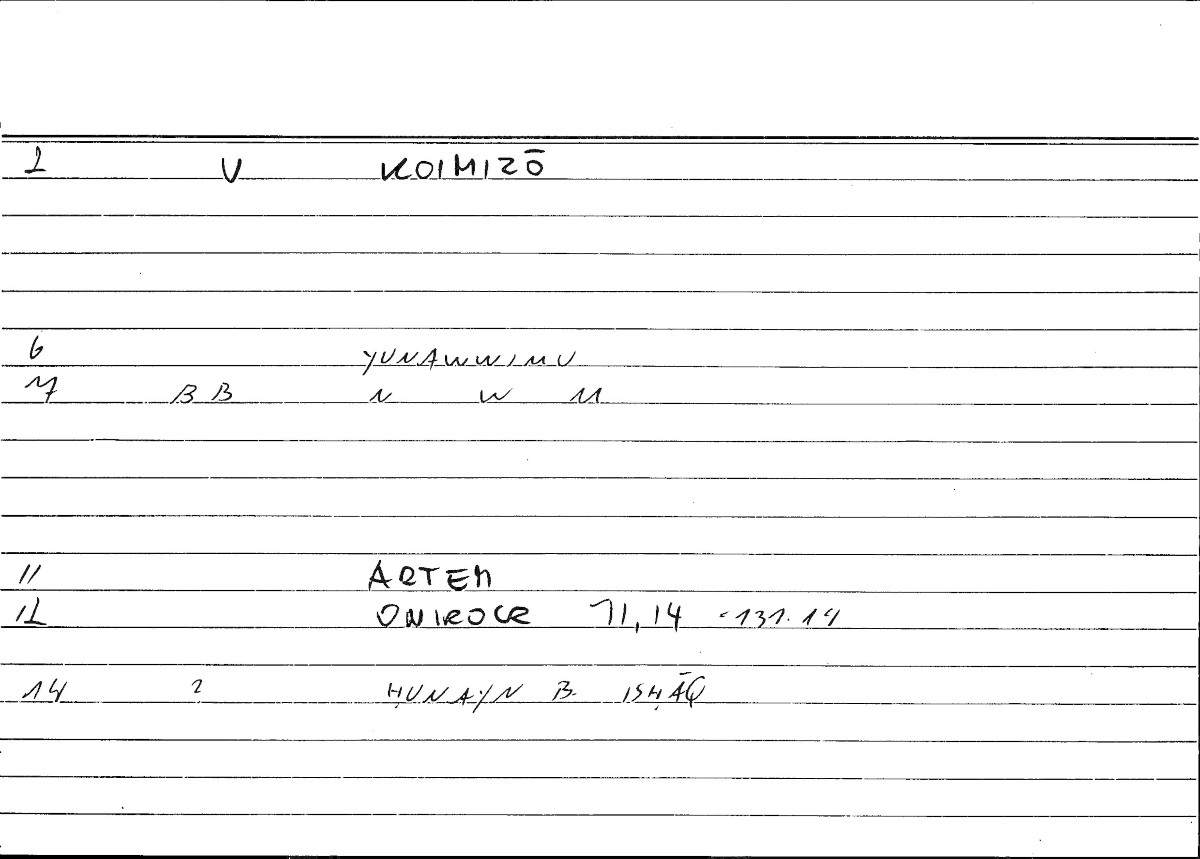 1 V KOIMIZŌ
6 YUNAWWIMU
7 BB N W M
11 ARTEM
12 ONIROCR 71,14 -131.14
14 2 ḤUNAYN B. ISḤĀQ